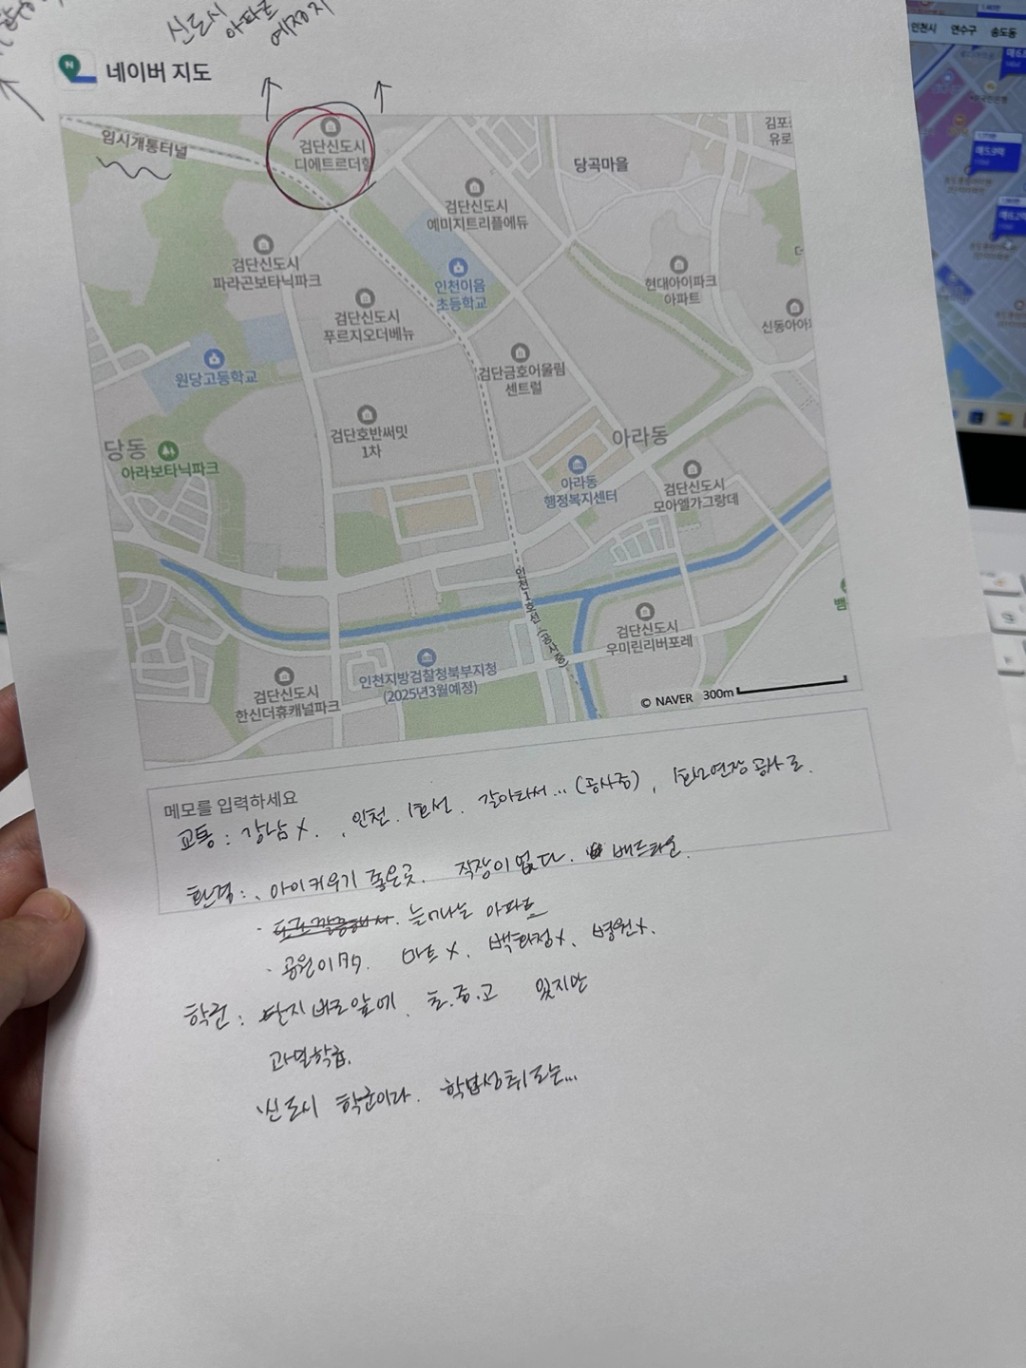 신도시
아파트
예정지
네이버 지도
임시개통터널
검단신도시
디에트르더힐
당곡마을
김포
유로
검단신도시
예미지트리플에듀
검단신도시
파라곤보타닉파크
인천이음
초등학교
현대아이파크
아파트
검단신도시
푸르지오더베뉴
신동아아
원당고등학교
검단금호어울림
센트럴
검단호반써밋
1차
아라동
당동
아라보타닉파크
아라동
행정복지센터
검단신도시
모아엘가그랑데
인천1호선 (공사중)
검단신도시
우미린리버포레
뱀
인천지방검찰청북부지청
(2025년3월예정)
검단신도시
한신더휴캐널파크
© NAVER 300m
메모를 입력하세요
교통 : 강남 X. , 인천. 1호선. 갈아타서... (공사중) ,
환경 : . 아이키우기 좋은곳. 직장이 없다. 베드타운.
· 늘어나는 아파트
· 공원이 마트 X. 백화점X. 병원X.
학군 : 단지 바로앞에. 초.중.고 있지만
과밀학급.
신도시 학군이라. 학업성취도는...
인천시 연수구 송도동